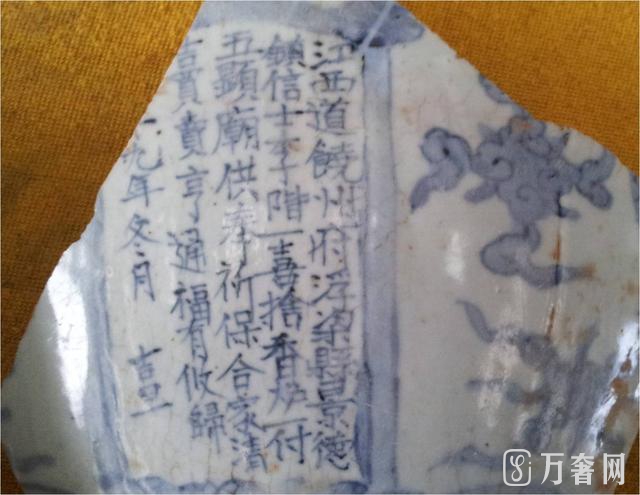 江西道饒州府浮梁縣景德
鎮信士李階一喜捨香炉一付
五顯廟供奉祈保合家清
吉買賣亨通福有攸歸
九年冬月 吉旦
万奢网